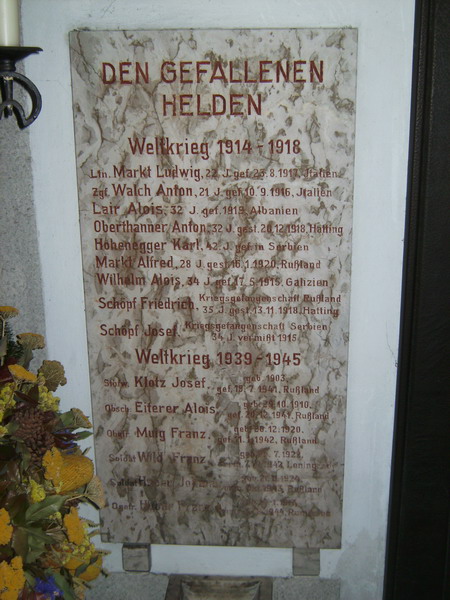 DEN GEFALLENEN
HELDEN
Weltkrieg 1914 - 1918
Ltn. Markt Ludwig, 22 J. gef. 23. 8. 1917, Italien
Zgf. Walch Anton, 21 J. gef. 10. 9. 1916, Italien
Lair Alois, 32 J. gef. 1919, Albanien
Oberthanner Anton, 32 J. gest. 20.12.1918, Hötting
Hohenegger Karl, 42 J. gef. in Serbien
Markt Alfred, 28 J. gest. 16.1.1920, Rußland
Wilhelm Alois, 34 J. gef. 17. 5. 1915, Galizien
Schöpf Friedrich, Kriegsgefangenschaft Rußland
35 J. gest. 13.11.1918, Hötting
Schöpf Josef, Kriegsgefangenschaft Serbien
34 J. vermißt 1915
Weltkrieg 1939 - 1945
Klotz Josef, geb. 1903,
gef. 15. 7. 1941, Rußland
Eiterer Alois, geb. 10. 1910,
gef. 20. 12. 1941, Rußland
Muig Franz, geb. 20. 12. 1920,
gef. 1942, Rußland
Soldat Wild Franz,
1942
Soldat
Rußland